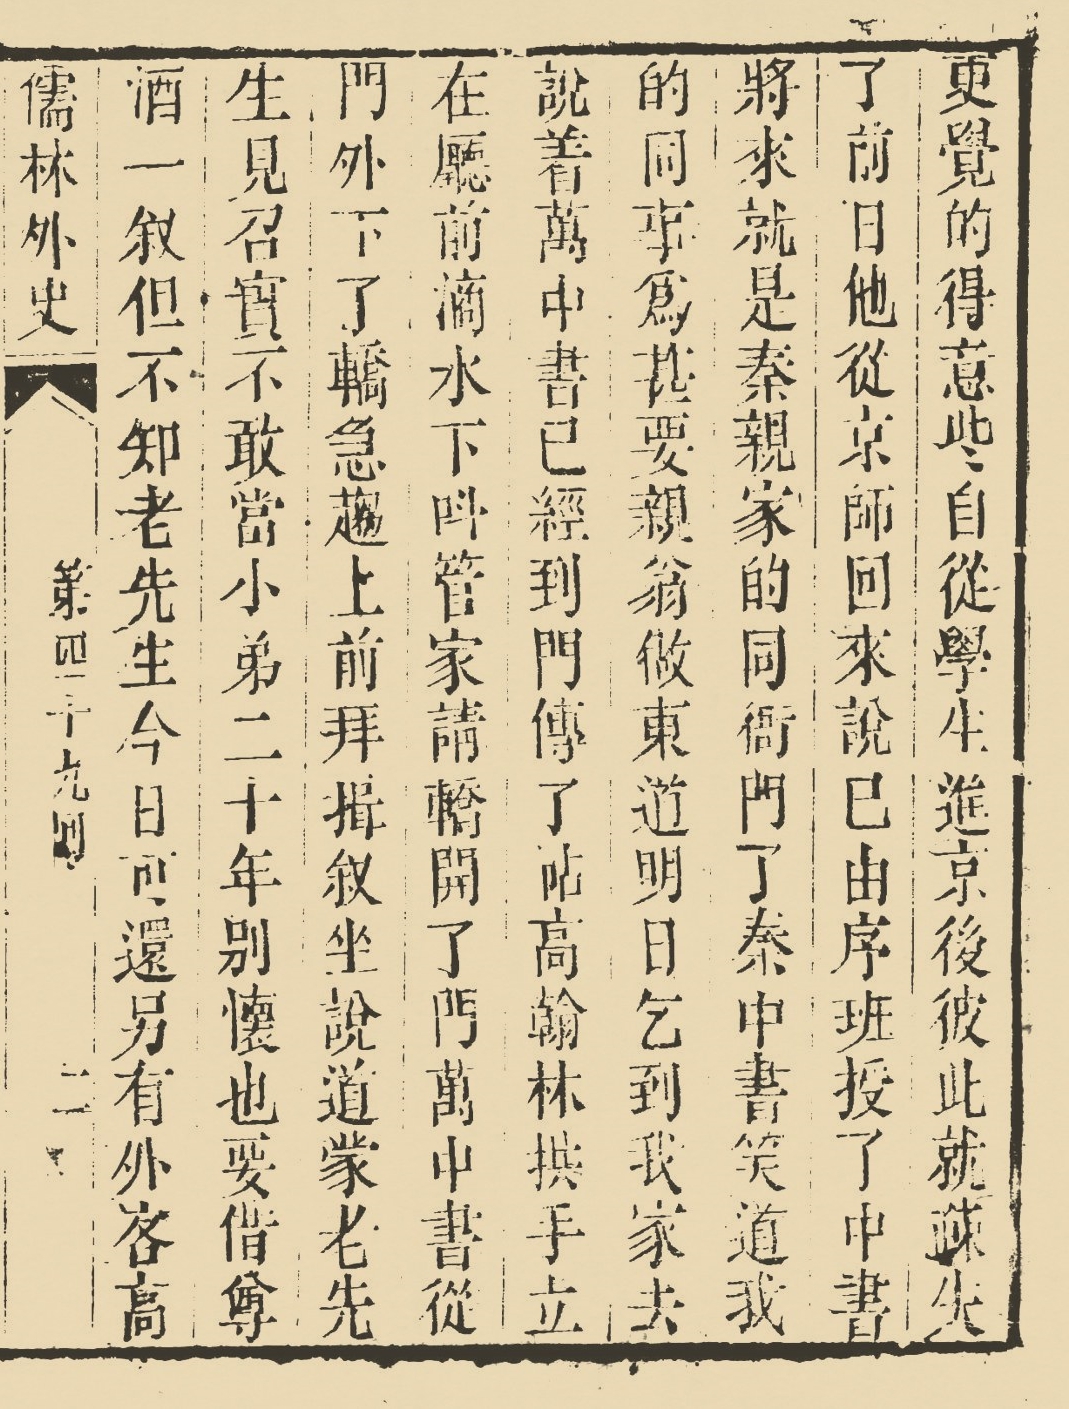 更覺的得意些自從學生進京後彼此就疎失
了前日他從京師回來說已由序班授了中書
將來就是秦親家的同衙門了秦中書笑道我
的同事爲甚要親翁做東道明日乞到我家去
說着萬中書已經到門傳了帖高翰林拱手立
在廳前滴水下呌管家請轎開了門萬中書從
門外下了轎急趨上前拜揖叙坐說道蒙老先
生見召實不敢當小弟二十年别懷也要借尊
酒一叙但不知老先生今日可還另有外客高
儒林外史 第四十九回 二